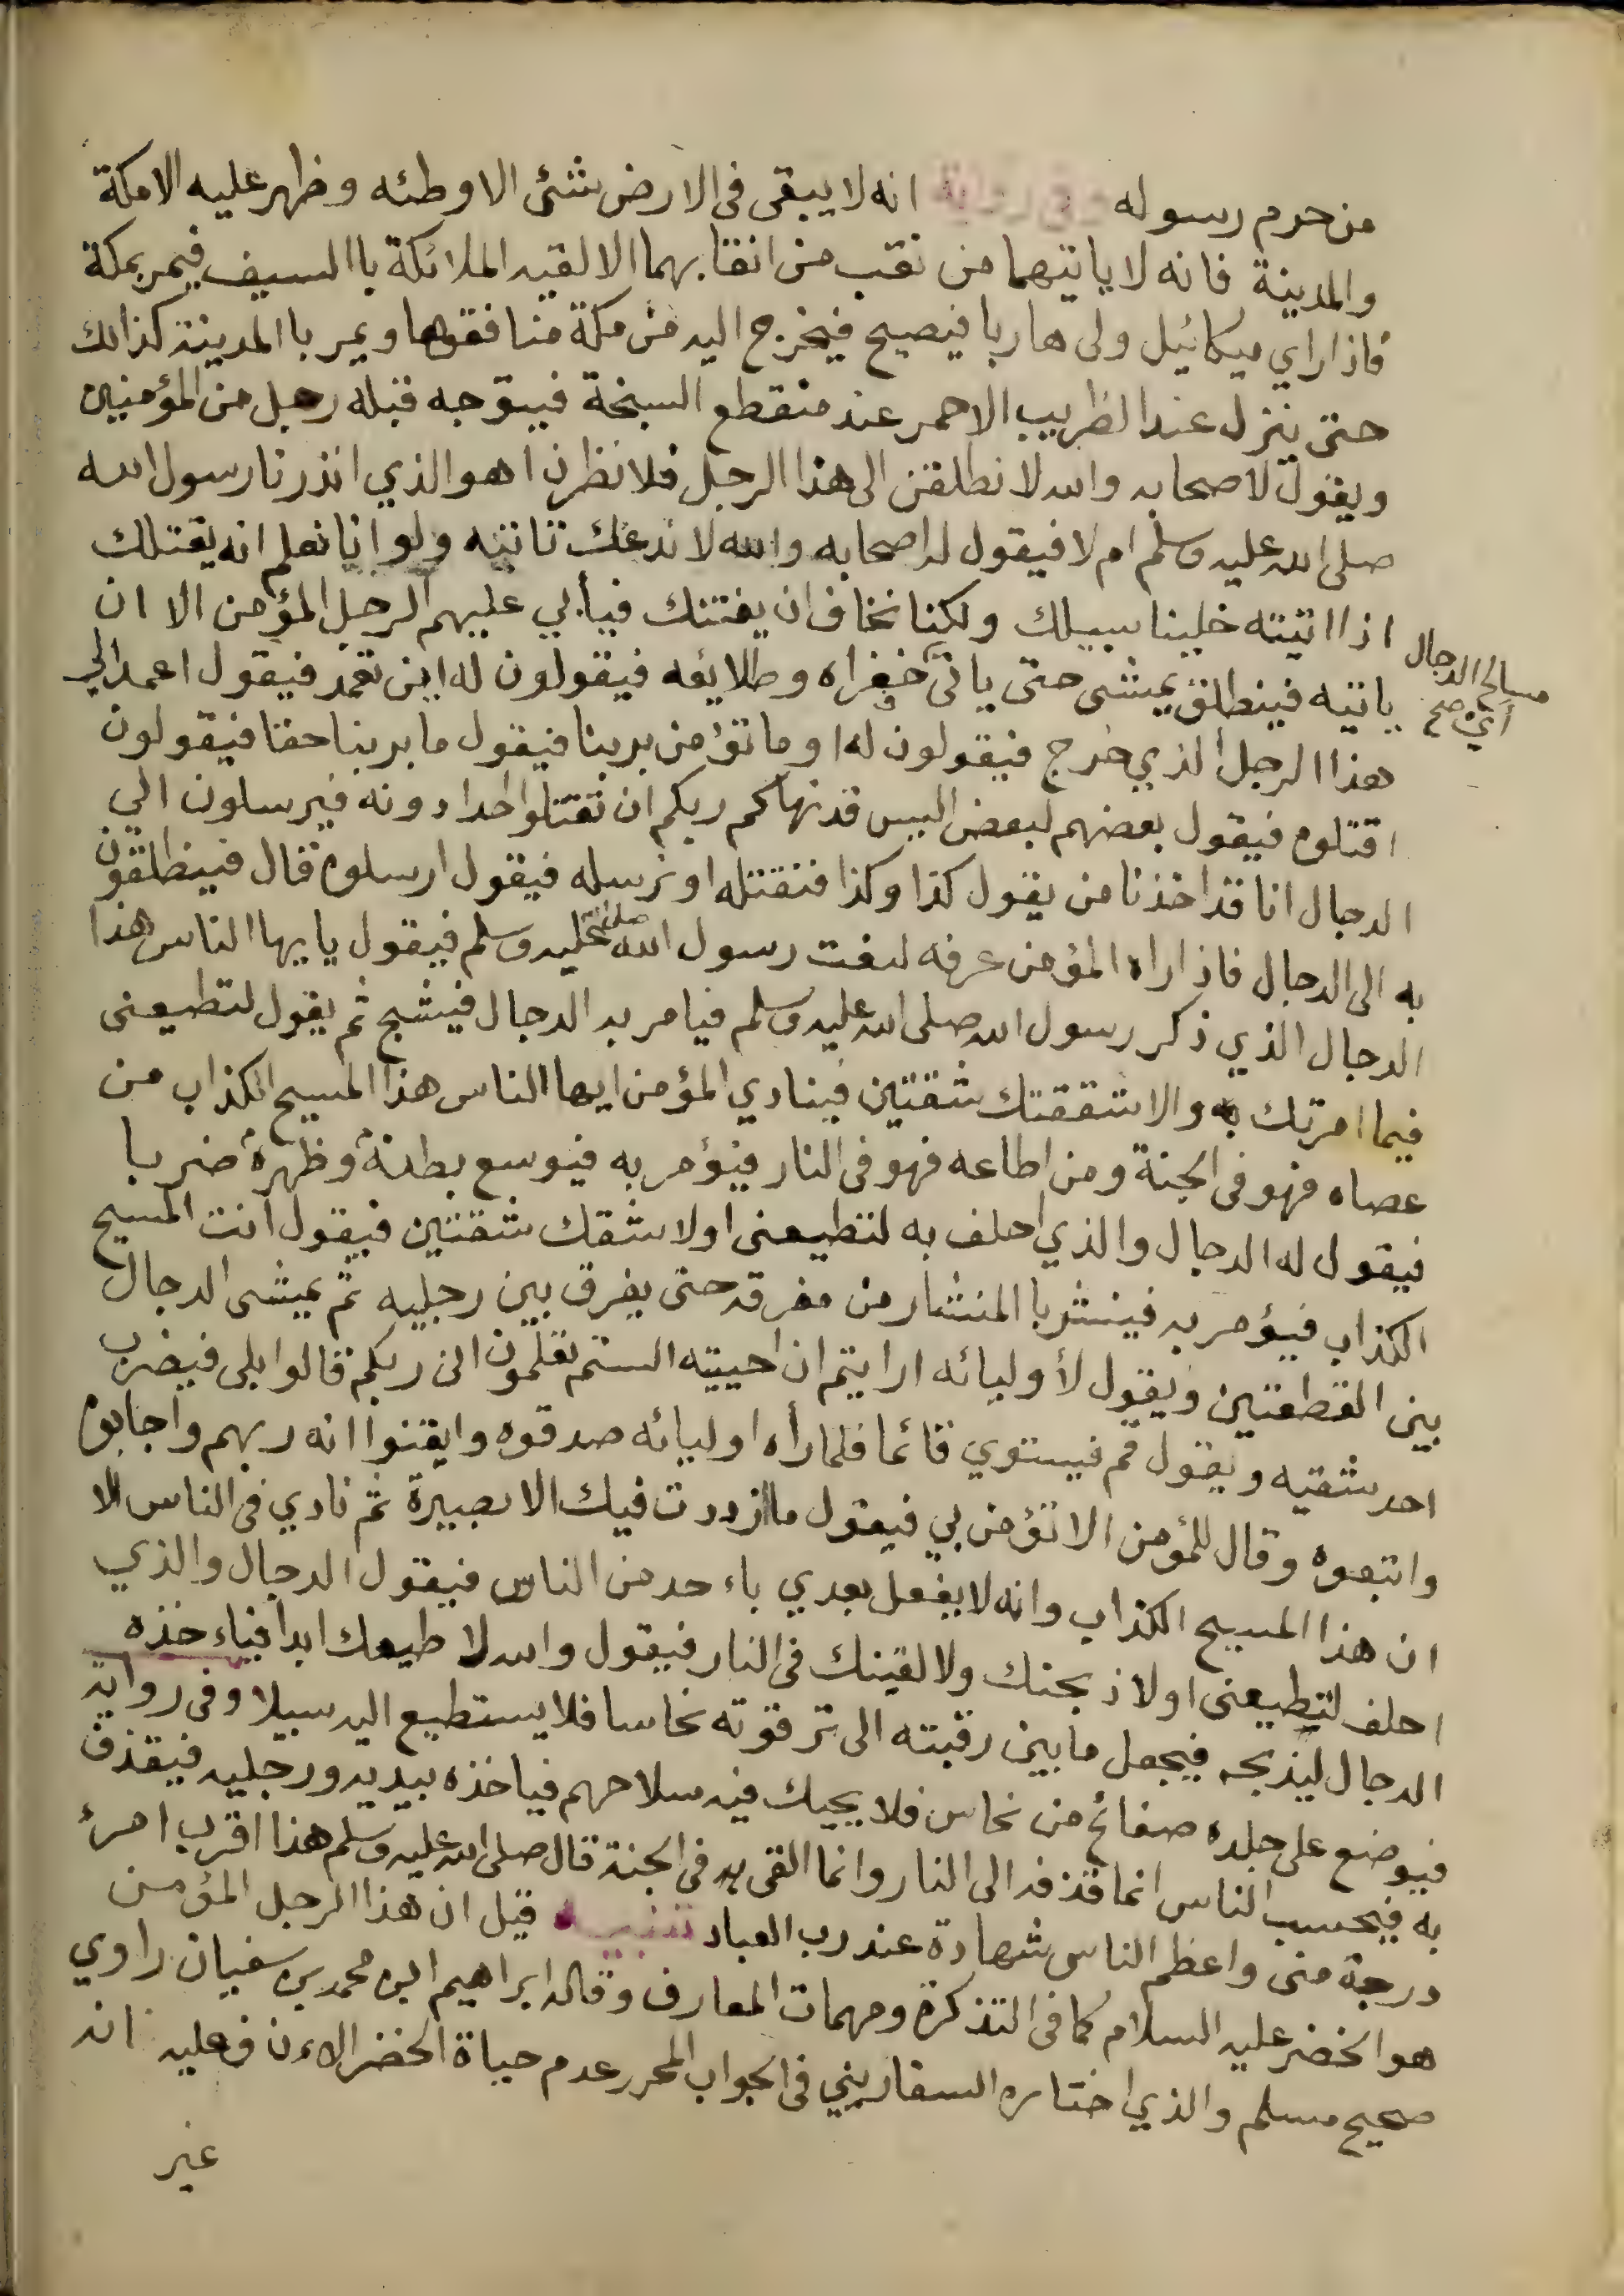 من حرم رسوله وفي رواية انه لا يبقى فى الارض شئ الا وطئه وظهر عليه الا مكة
والمدينة فانه لا ياتيهما من نقب من انقابهما الا لقيه الملائكة باالسيف فيمر بمكة
فاذا راي ميكائيل ولى هاربا فيصيح فيخرج اليه من مكة منافقوها ويمر باالمدينة كذالك
حتى ينزل عند الظريب الاحمر عند منقطع السبخة فيتوجه قبله رجل من المؤمنين
ويقول لاصحابه والله لانطلقن الى هذا الرجل فلانظرن اهو الذي انذرنا رسول الله
صلى الله عليه وسلم ام لا فيقول له اصحابه والله لا ندعك تاتيه ولو انا نعلم انه يقتلك
اذا اتيته خلينا سبيلك ولكنا نخاف ان يفتنك فيأبي عليهم الرجل المؤمن الا ان
ياتيه فينطلق يمشى حتى ياتى خفراه وطلائعه فيقولون له اين تعمد فيقول اعمد الي
مسالح الدجال
أي صح
هذا الرجل الذي خرج فيقولون له او ما تؤمن بربنا فيقول ما بربنا خفا فيقولون
اقتلوه فيقول بعضهم لبعض اليس قد نهاكم ربكم ان تقتلوا احدا دونه فيرسلون الي
الدجال انا قد اخذنا من يقول كذا وكذا فنقتله او نرسله فيقول ارسلوه قال فينطلقون
به الى الدجال فاذا راه المؤمن عرفه لنعت رسول الله صلى الله عليه وسلم فيقول يايها الناس هذا
الدجال الذي ذكر رسول الله صلى الله عليه وسلم فيامر به الدجال فيشبح ثم يقول لتطيعنى
فيما امرتك به والا شققتك شقتين فينادي المؤمن ايها الناس هذا المسيح الكذاب من
عصاه فهو فى الجنة ومن اطاعه فهو فى النار فيؤمر به فيوسع بطنه وظهره ضربا
فيقول له الدجال والذي احلف به لتطيعنى اولاشقك شقتين فيقول انت المسيح
الكذاب فيؤمر به فينشر باالمنشار من مفرقه حتى يفرق بين رجليه ثم يمشى الدجال
بين القطعتين ويقول لأوليائه ارايتم ان احييته الستم تعلمون انى ربكم قالوا بلى فيضرب
احد شقيه ويقول قم فيستوي قائما فلما رأه اوليائه صدقوه وايقنوا انه ربهم واجابوه
واتبعوه وقال للمؤمن الا تؤمن بي فيقول ما ازددت فيك الا بصيرة ثم نادي فى الناس الا
ان هذا المسيح الكذاب وانه لا يفعل بعدي باءحد من الناس فيقول الدجال والذي
احلف لتطيعنى اولاذبحنك ولالقينك فى النار فيقول والله لا طيعك ابدا فياءخذه
الدجال ليذبحه فيجعل ما بين رقبته الى ترقوته نحاسا فلا يستطيع اليه سبيلا وفى رواية
فيوضع على جلده صفائح من نحاس فلا يحيك فيه سلاحهم فياخذه بيديه ورجليه فيقذف
به فيحسب الناس انما قذفه الى النار وانما القى به فى الجنة قال صلى الله عليه وسلم هذا اقرب امرئ
درجة منى واعظم الناس شهادة عند رب العباد تنبيه قيل ان هذا الرجل المؤمن
هو الخضر عليه السلام كما فى التذكرة ومهمات المعارف وقاله ابراهيم ابن محمد بن سفيان راوي
صحيح مسلم والذي اختاره السفاريني فى الجواب المحرر عدم حياة الخضر الاءن فعليه انه
غير